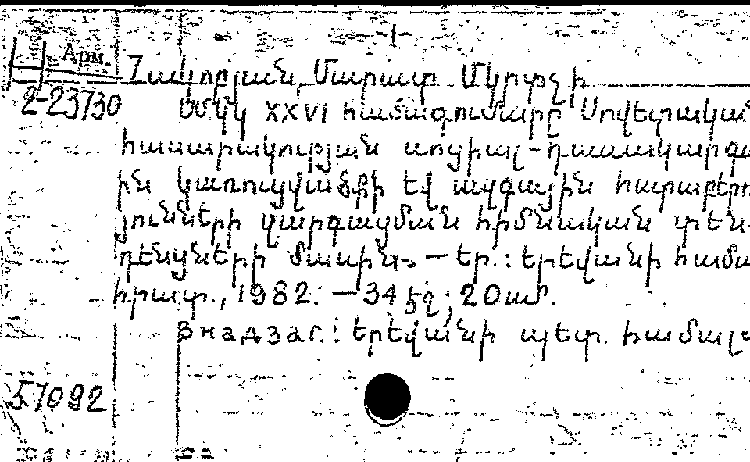 Арм.
Հակոբյան, Մարատ Մկրտչի
2-23730
ՍՄԿԿ XXVI համագումարը Սովետական
հասարակության սոցիալ-դասակարգա
ին կառուցվածքի եվ ազգային հարաբերո
յունների զարգացման հիմնական տեն-
դենցների մասին.- — Եր.: Երեվանի համա
հրատ., 1982. — 34 էջ; 20սմ.
В надзаг.: Երեվանի պետ. համալս
57092